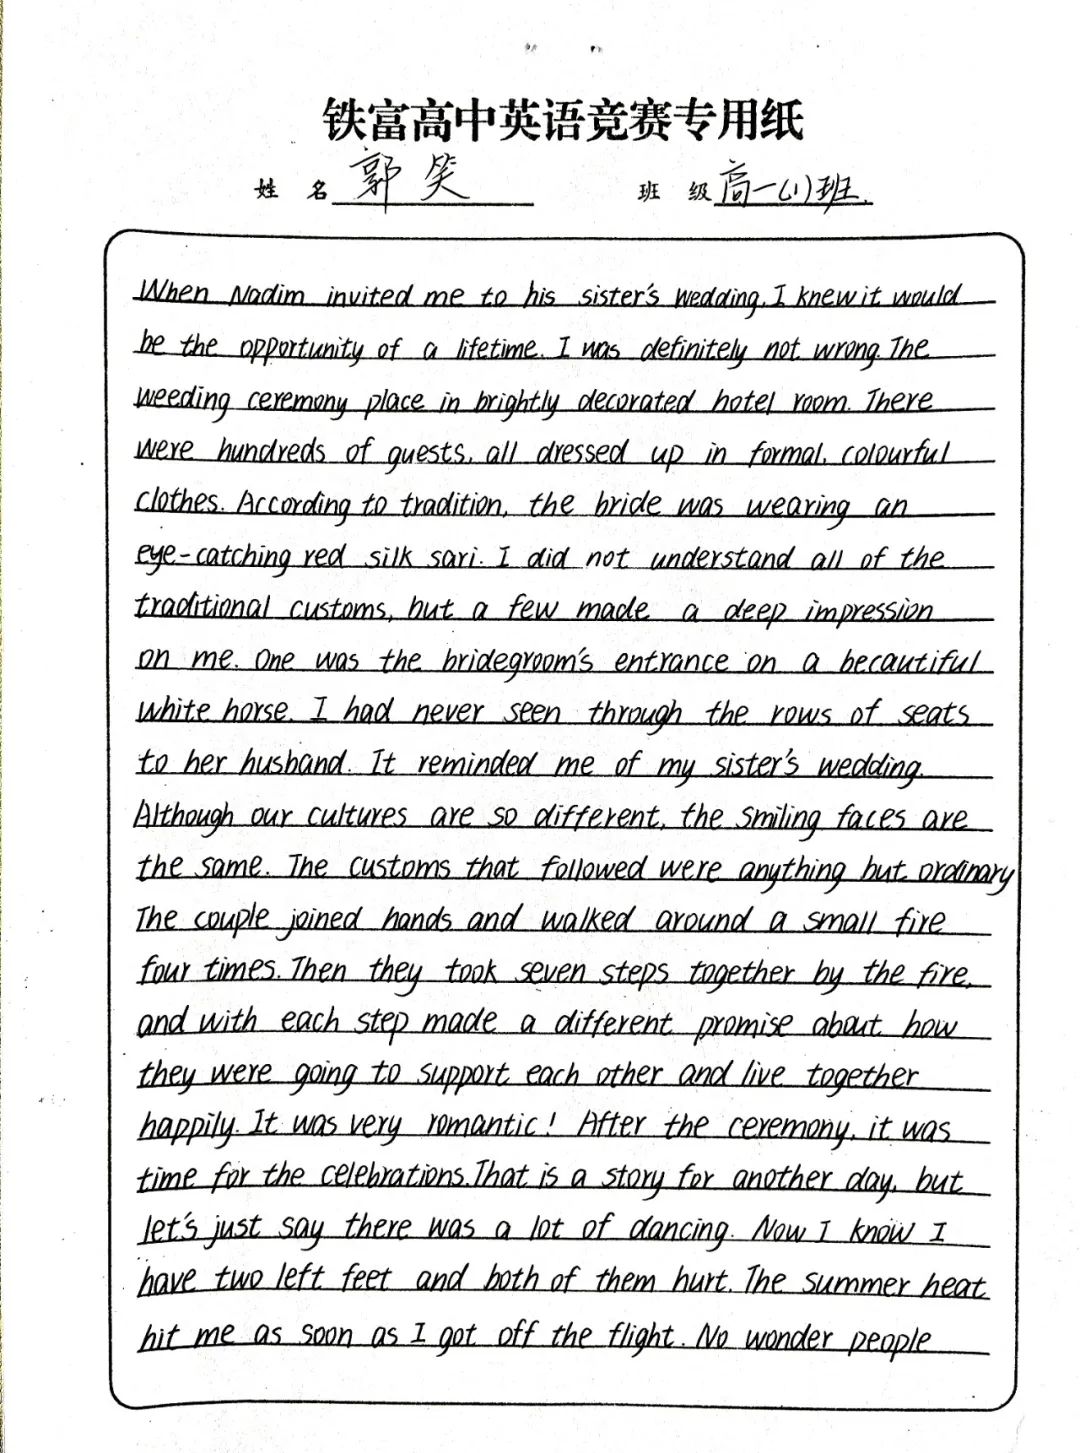 铁富高中英语竞赛专用纸
姓 名 郭笑 班 级 高一(1)班.
When Nadim invited me to his sister's wedding, I knew it would
be the opportunity of a lifetime. I was definitely not wrong. The
weeding ceremony place in brightly decorated hotel room. There
were hundreds of guests, all dressed up in formal, colourful
clothes. According to tradition, the bride was wearing an
eye-catching red silk sari. I did not understand all of the
traditional customs, but a few made a deep impression
on me. One was the bridegroom's entrance on a becautiful
white horse. I had never seen through the rows of seats
to her husband. It reminded me of my sister's wedding.
Although our cultures are so different, the smiling faces are
the same. The customs that followed were anything but ordinary
The couple joined hands and walked around a small fire
four times. Then they took seven steps together by the fire,
and with each step made a different promise about how
they were going to support each other and live together
happily. It was very romantic! After the ceremony, it was
time for the celebrations. That is a story for another day, but
let's just say there was a lot of dancing. Now I know I
have two left feet and both of them hurt. The summer heat
hit me as soon as I got off the flight. No wonder people